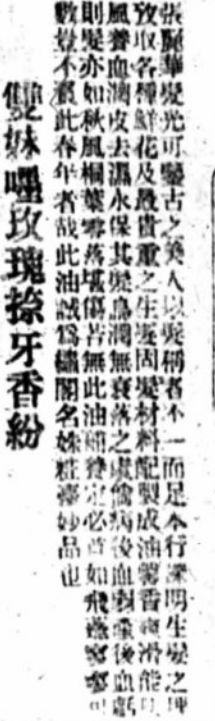 張麗華髮光可鑒古之美人以髮稱者不一而足本行深明生髮之理
攷取各種鮮花及最貴重之生髮固髮材料配製成油馨香爽滑能
風養血潤皮去濕水保其髮烏潤無衰落之虞倘病後血弱產後血虧
則髮亦如秋風桐葉零落堪傷若無此油補救定必首如飛蓬寥寥可
數豈不負此春年者哉此油誠為繡閣名姝粧澤妙品也
雙妹嘜玫瑰擦牙香粉